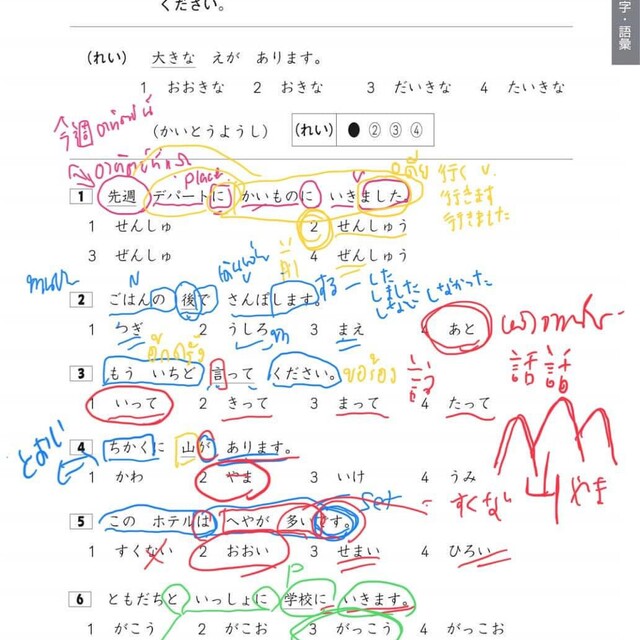 ください。
字・語彙
(れい) 大きな えが あります。
1 おおきな 2 おきな 3 だいきな 4 たいきな
今週
(かいとうようし) (れい) ● ② ③ ④
place
行く
行きます
行きました
1 先週 デパートに かいものに いきました
1 せんしゅ 2 せんしゅう
3 ぜんしゅ 4 ぜんしゅう
N
する
した
しました
しない しなかった
2 ごはんの 後で さんぽします。
1 つぎ 2 うしろ 3 まえ 4 あと
3 もう いちど 言って ください。
1 いって 2 きって 3 まって 4 たって
話 話
とおい
4 ちかくに 山が あります。
1 かわ 2 やま 3 いけ 4 うみ
山 やま
set
すくない
5 この ホテルは へやが 多いです。
1 すくない 2 おおい 3 せまい 4 ひろい
P
6 ともだちと いっしょに 学校に いきます。
1 がこう 2 がこお 3 がっこう 4 がっこお